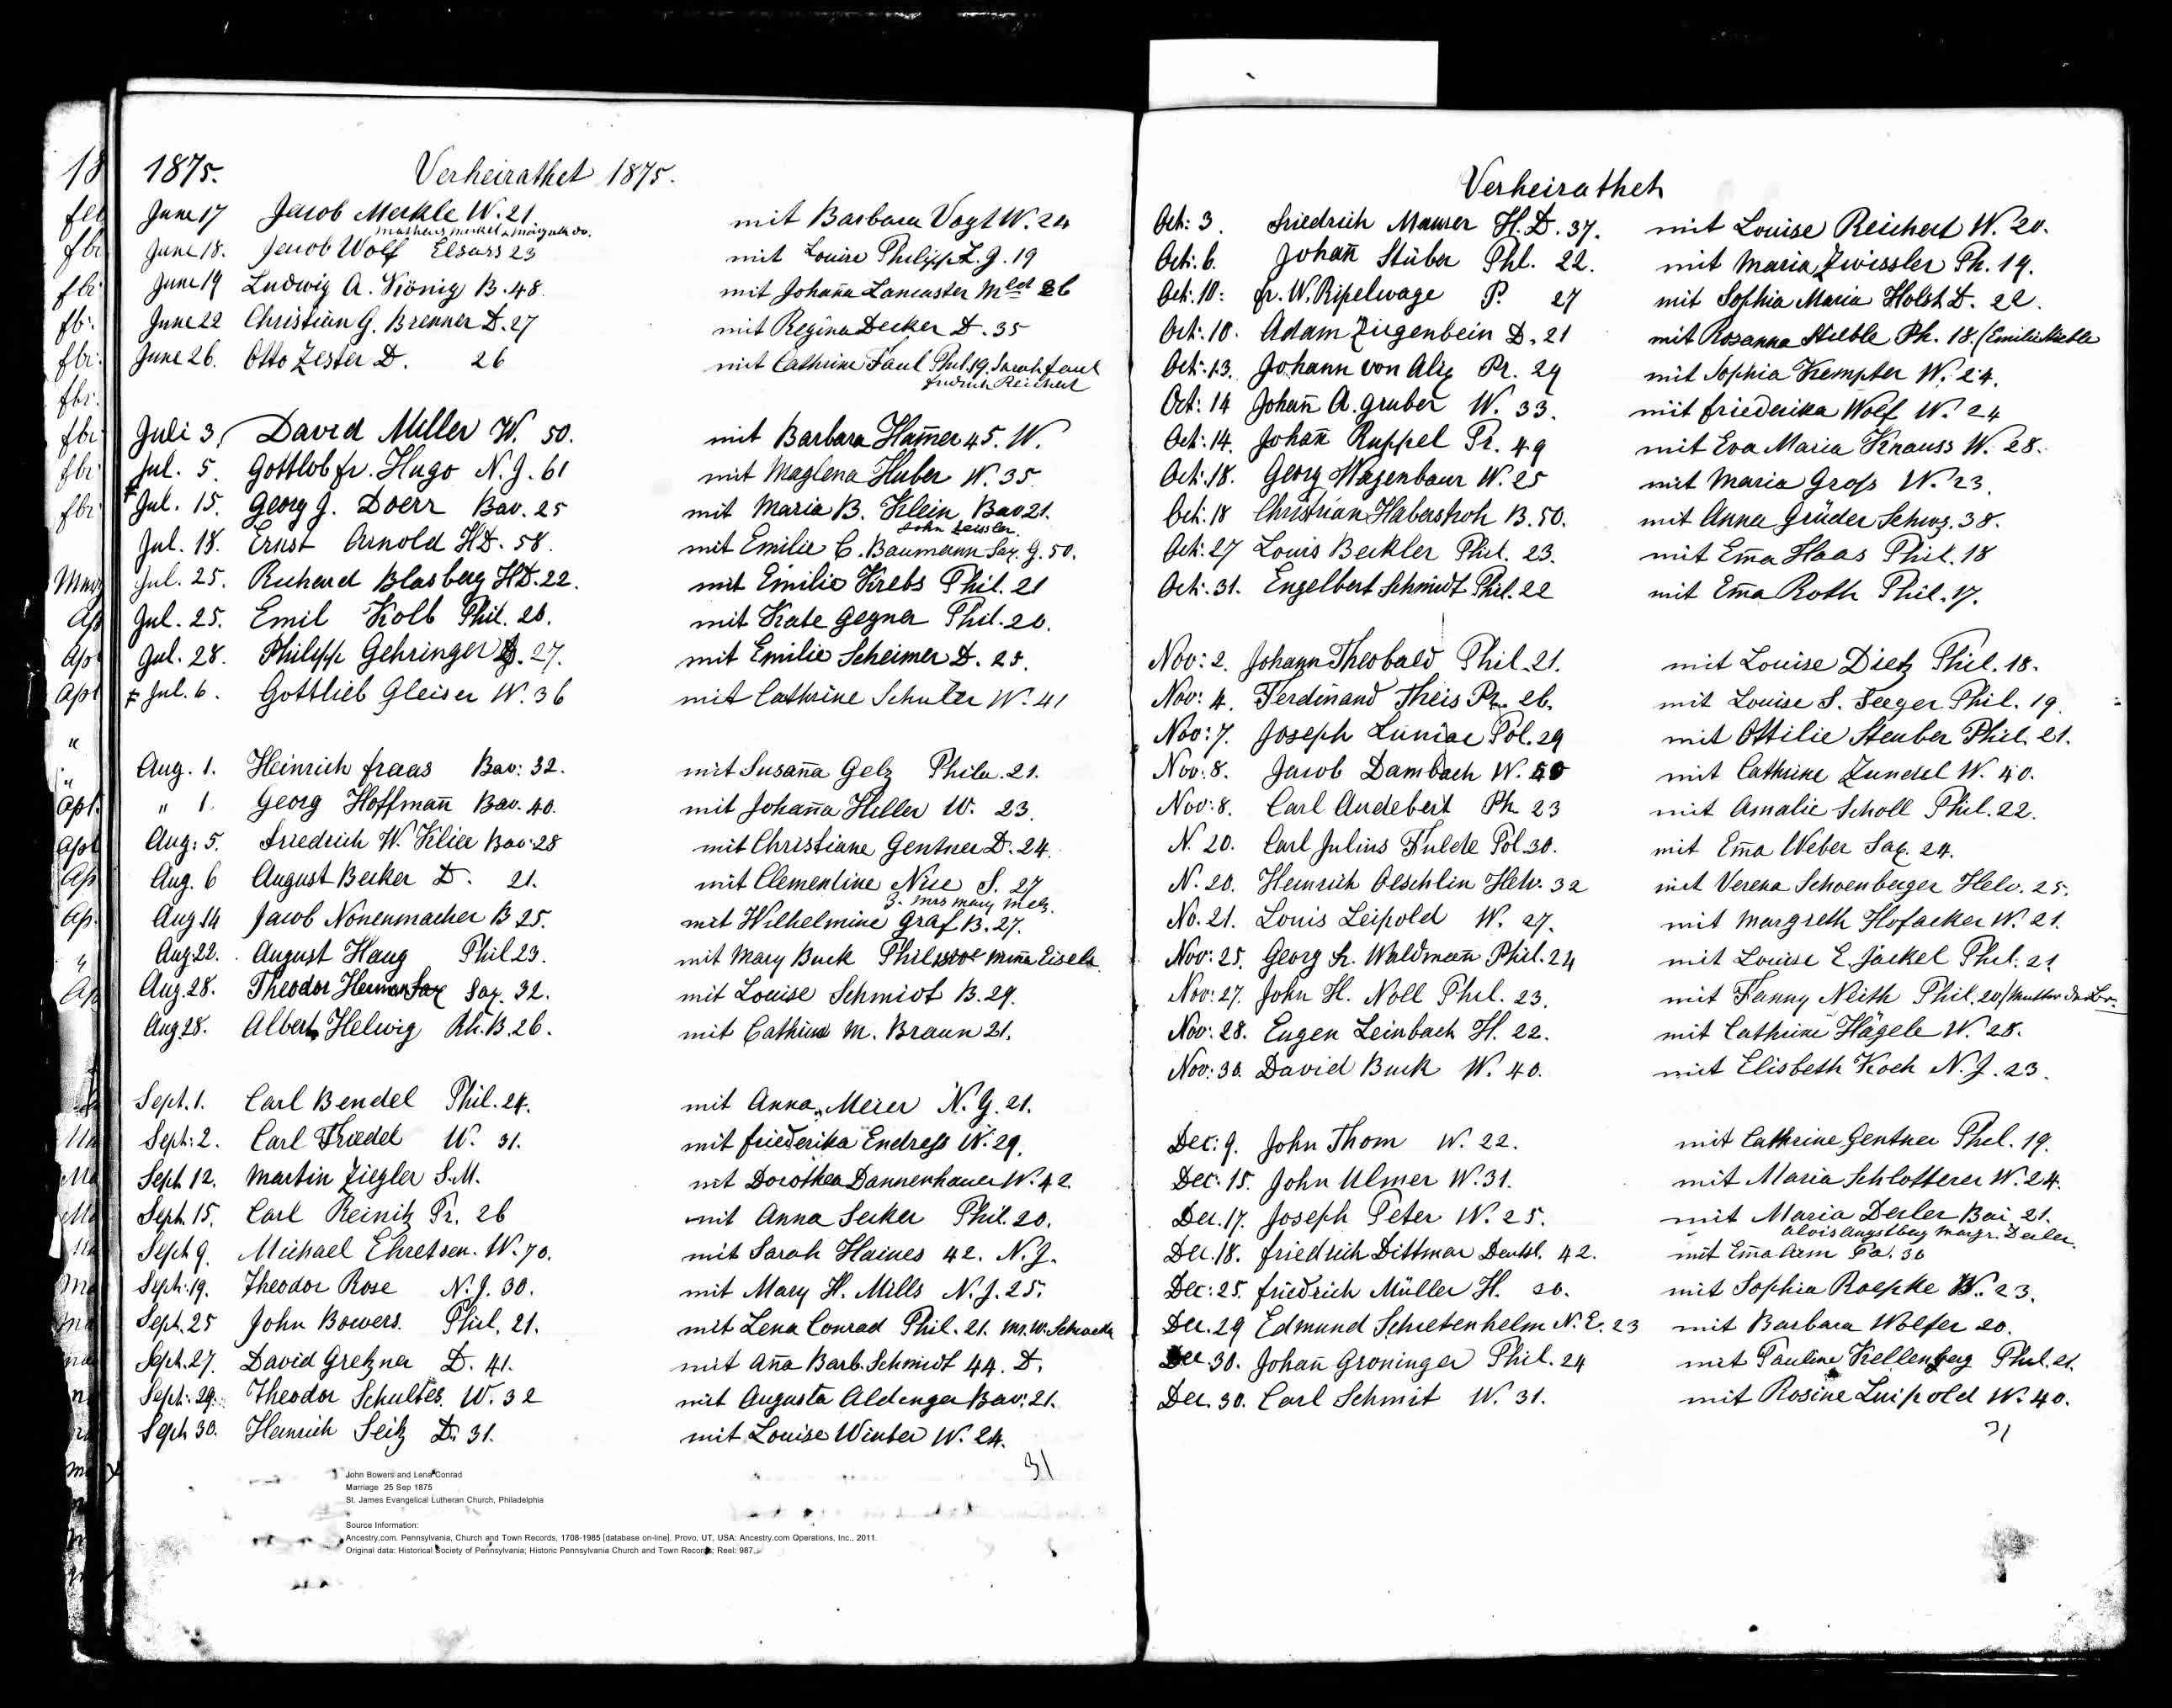 1875. Verheirathet 1875.
June 17 Jacob Merkle W. 21. mit Barbara Vogt W. 24
June 18. Jacob Wolf Elsass 23 mit Louise Philipp L. J. 19
June 19 Ludwig A. König B. 48. mit Johan̄a Lancaster 26
June 22 Christian G. Brenner D. 27 mit Regina Decker D. 35
June 26. Otto Zester D. 26 mit Cathrine Faul Phil. 19. Sarah Faul
Friedrich Reichert
Juli 3, David Miller W. 50. mit Barbara Ham̄er 45. W.
Jul. 5. Gottlob Fr. Hugo N. J. 61 mit Maglena Huber W. 35
Jul. 15. Georg J. Doerr Bav. 25 mit Maria B. Klein Bav 21.
John Zeissler
Jul. 18. Ernst Arnold H D. 58. mit Emilie C. Baumann Sax. G. 50.
Jul. 25. Richard Blasberg H D. 22. mit Emilie Krebs Phil. 21
Jul. 25. Emil Kolb Phil. 26. mit Kate Gegner Phil. 20.
Jul. 28. Philipp Gehringer D. 27. mit Emilie Scheimer D. 25.
Jul. 6. Gottlieb Gleiser W. 36 mit Cathrine Schuler W. 41
Aug. 1. Heinrich Fraas Bav: 32. mit Susan̄a Gelz Phila. 21.
" 1. Georg Hoffman̄ Bav. 40. mit Johan̄a Hiller W. 23.
Aug: 5. Friedrich W. Klier Bav: 28 mit Christiane Gentner D. 24.
Aug. 6 August Becker D. 21. mit Clementine Nise S. 27
3. Mrs Mary Metz.
Aug 14 Jacob Nonenmacher B 25. mit Wilhelmine Graf B. 27.
Aug 22. August Haug Phil 23. mit Mary Buck Phil Min̄a Eisele
Aug. 28. Theodor Herman Sax Sax. 32. mit Louise Schmidt B. 29.
Aug 28. Albert Helwig Rh. B. 26. mit Cathrine M. Braun 21.
Sept. 1. Carl Bendel Phil. 24. mit Anna Meier N. Y. 21.
Sept: 2. Carl Friedel W. 31. mit Friederika Endress W. 29.
Sept 12. Martin Ziegler S. M. mit Dorothea Dannenhauer W. 42.
Sept. 15. Carl Reinitz Pr. 26 mit Anna Secker Phil. 20.
Sept 9. Michael Ehretsen. W. 70. mit Sarah Haines 42. N. J.
Sept: 19. Theodor Rose N. J. 30. mit Mary H. Mills N. J. 25.
Sept. 25 John Bowers. Phil. 21. mit Lena Conrad Phil. 21. Mr. W.
Sept. 27. David Gretzner D. 41. mit An̄a Barb. Schmidt 44. D.
Sept: 29. Theodor Schultes W. 32 mit Augusta Aldinger Bav: 21.
Sept 30. Heinrich Seitz D. 31. mit Louise Winter W. 24.
31
John Bowers and Lena Conrad
Marriage 25 Sep 1875
St. James Evangelical Lutheran Church, Philadelphia
Source Information:
Ancestry.com. Pennsylvania, Church and Town Records, 1708-1985 [database on-line]. Provo, UT, USA: Ancestry.com Operations, Inc., 2011.
Original data: Historical Society of Pennsylvania; Historic Pennsylvania Church and Town Records; Reel: 987.
Verheirathet
Oct: 3. Friedrich Maurer H. D. 37. mit Louise Reichert W. 20.
Oct: 6. Johan̄ Stüber Phl. 22. mit Maria Zwissler Ph. 19.
Oct: 10: Fr. W. Ripelwage P. 27 mit Sophia Maria Holst D. 22.
Oct: 10. Adam Ziegenbein D. 21 mit Rosanna Stieble Ph. 18. (Emilie
Oct: 13. Johann von Alix Pr. 29 mit Sophia Kempter W. 24.
Oct: 14 Johan̄ A. Gruber W. 33. mit Friederika Wolf W. 24
Oct: 14. Johan̄ Ruppel Pr. 49 mit Eva Maria Knauss W. 28.
Oct: 18. Georg Wagenbaur W. 25 mit Maria Gross W. 23.
Oct: 18 Christian Haberstroh B. 50. mit Anna Grüder Schwz. 38.
Oct: 27 Louis Beckler Phil. 23. mit Em̄a Haas Phil. 18
Oct: 31. Engelbert Schmidt Phil. 22 mit Em̄a Roth Phil. 17.
Nov: 2. Johann Theobald Phil. 21. mit Louise Dietz Phil. 18.
Nov: 4. Ferdinand Theis Pr. 26. mit Louise S. Seeger Phil. 19.
Nov: 7. Joseph Luniac Pol. 29 mit Ottilie Steuber Phil. 21.
Nov: 8. Jacob Dambach W. 50 mit Cathrine Zundel W. 40.
Nov: 8. Carl Audebert Ph 23 mit Amalie Scholl Phil. 22.
N. 20. Carl Julius Fulde Pol 30. mit Em̄a Weber Sax. 24.
N. 20. Heinrich Oeschlin Helv. 32 mit Verena Schoenberger Helv. 25.
No. 21. Louis Leipold W. 27. mit Margreth Hofacker W. 21.
Nov: 25. Georg Fr. Waldman̄ Phil. 24 mit Louise E. Jäckel Phil. 21.
Nov: 27. John H. Noll Phil. 23. mit Fanny Nieth Phil. 20/Mutter
Nov: 28. Eugen Leinbach H. 22. mit Cathrine Hägele W. 28.
Nov: 30. David Buck W. 40. mit Elisbeth Koch N. J. 23.
Dec: 9. John Thom W. 22. mit Cathrine Gentner Phil. 19.
Dec: 15. John Ulmer W. 31. mit Maria Schlotterer W. 24.
Dec. 17. Joseph Peter W. 25. mit Maria Deiler Bai 21.
Alois Angstberg Margr. Deiler.
Dec. 18. Friedrich Dittmar Deutsl. 42. mit Em̄a Arm Pa. 30
Dec: 25. Friedrich Müller H. 20. mit Sophia Roepke W. 23.
Dec. 29 Edmund Schietenhelm N. E. 23 mit Barbara Wolfer 20.
Dec 30. Johan̄ Groninger Phil. 24 mit Pauline Kellenberg Phil. 21.
Dec. 30. Carl Schmit W. 31. mit Rosine Luipold W. 40.
31